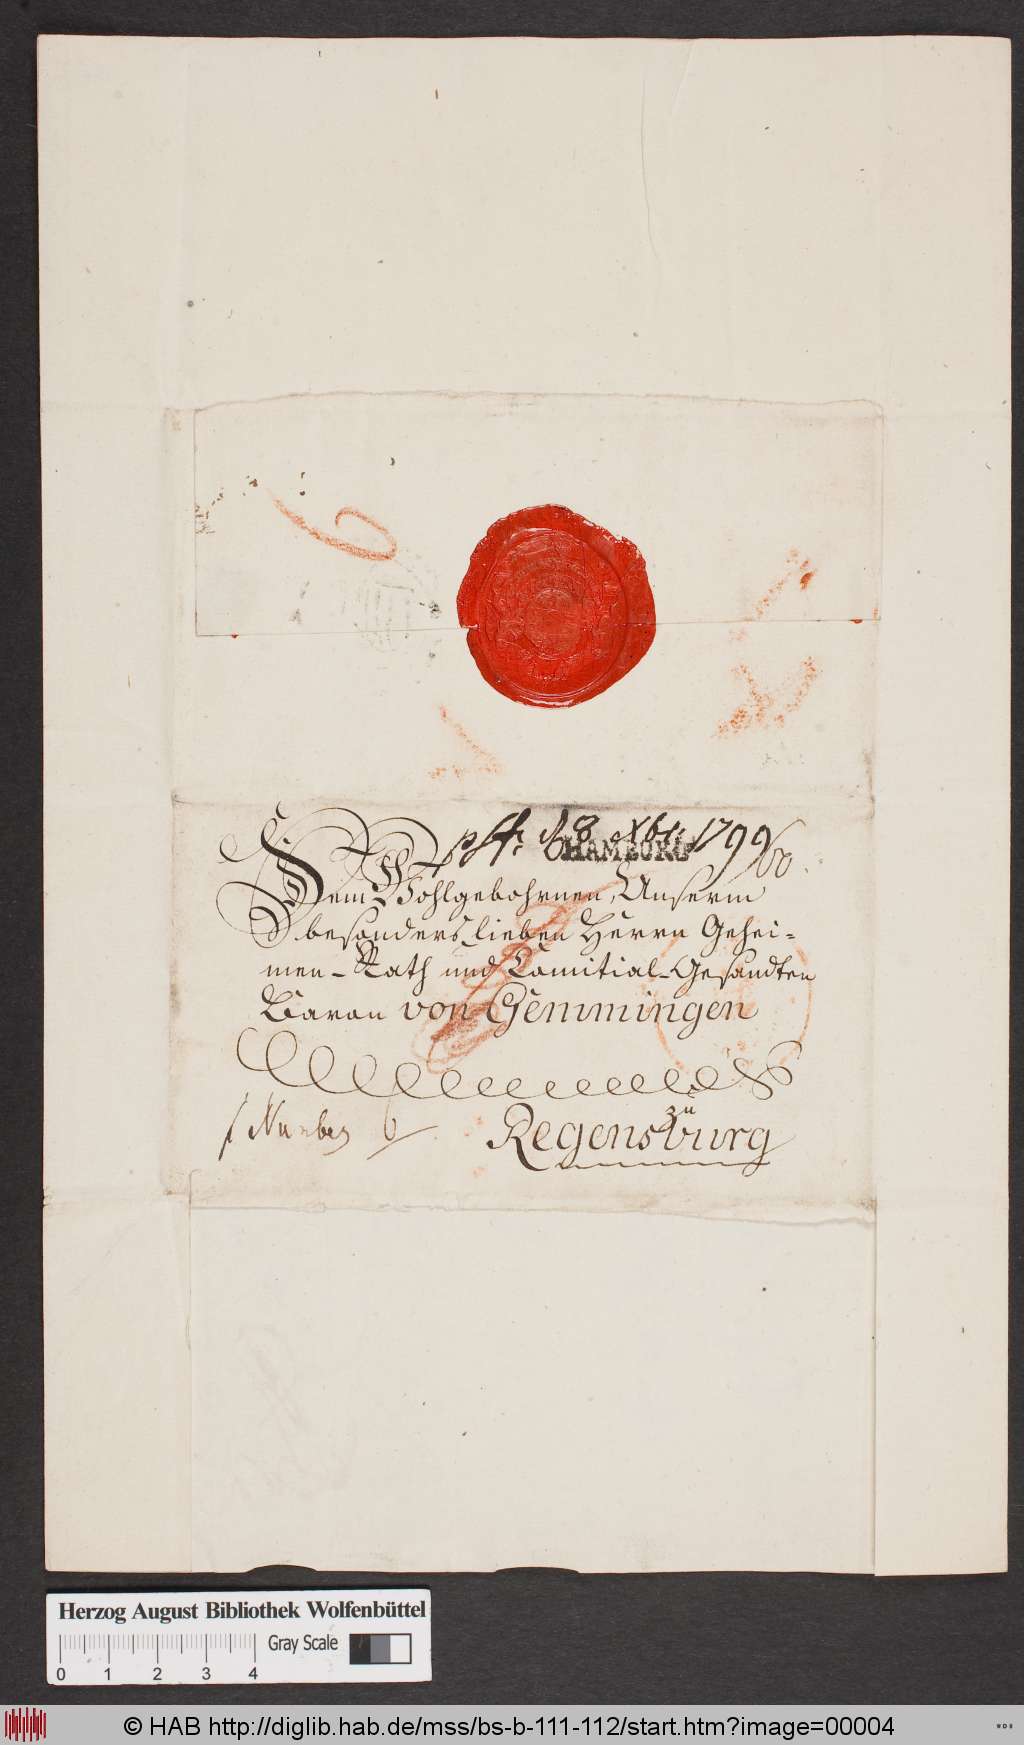 6
pst. d. 8 Xbr. 1799
HAMBURG
Dem Wohlgebohrnen, Unserm
besonders lieben Herrn Gehei-
men-Rath und Comitial-Gesandten
Baron von Gemmingen
zu
Regensburg
Herzog August Bibliothek Wolfenbüttel
Gray Scale
0 1 2 3 4
© HAB http://diglib.hab.de/mss/bs-b-111-112/start.htm?image=00004